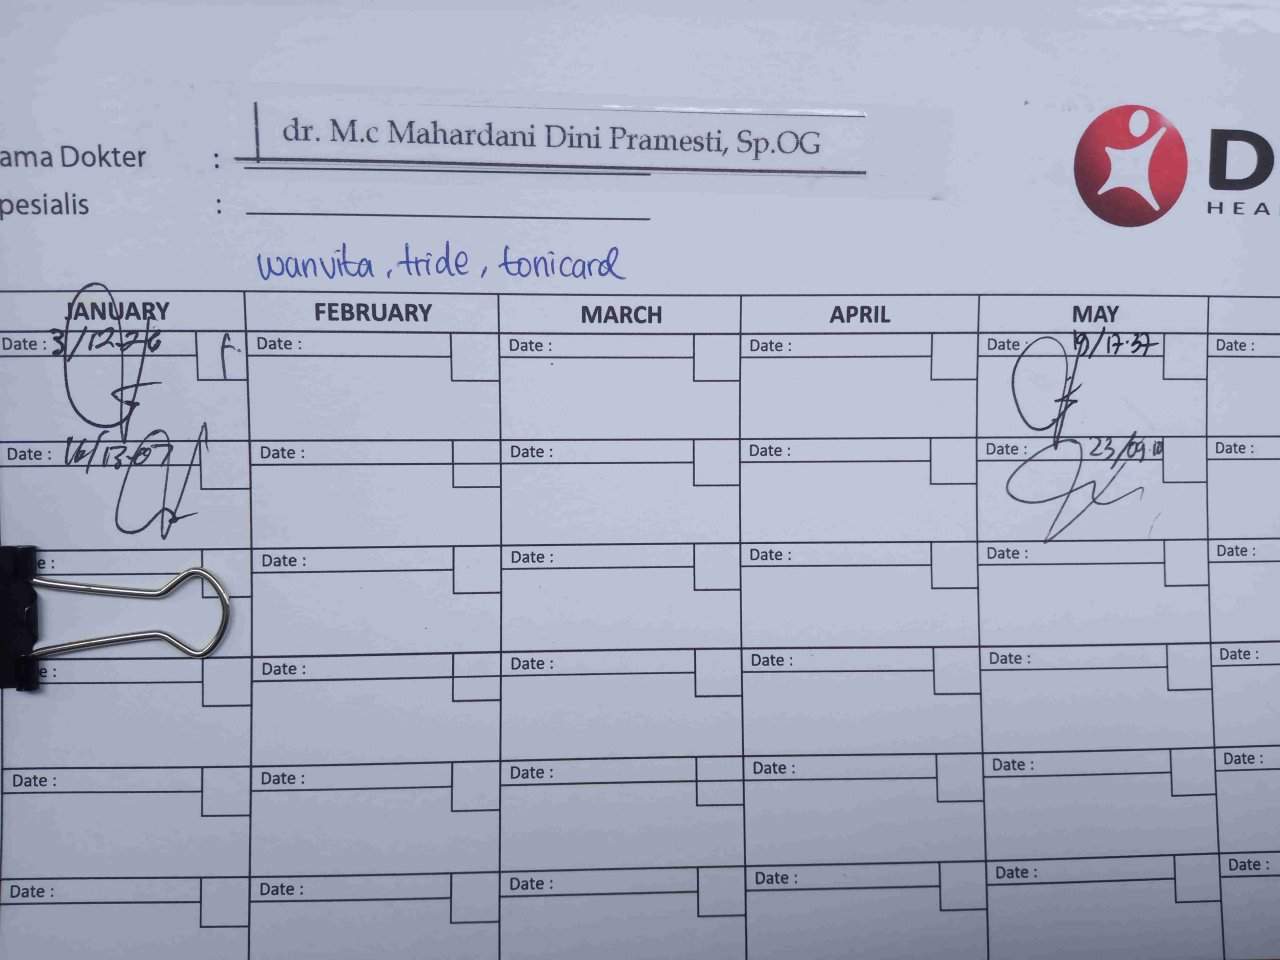 dr. M.c Mahardani Dini Pramesti, Sp.OG
ama Dokter :
pesialis :
D
HEA
wanvita, tride, tonicard
JANUARY FEBRUARY MARCH APRIL MAY
Date : 3/12.26 f. Date : Date : Date : Date : 19/17.37 Date :
Date : 16/13.07 Date : Date : Date : Date : 23/09.10 Date :
e : Date : Date : Date : Date : Date :
e : Date : Date : Date : Date : Date :
Date : Date : Date : Date : Date : Date :
Date : Date : Date : Date : Date : Date :